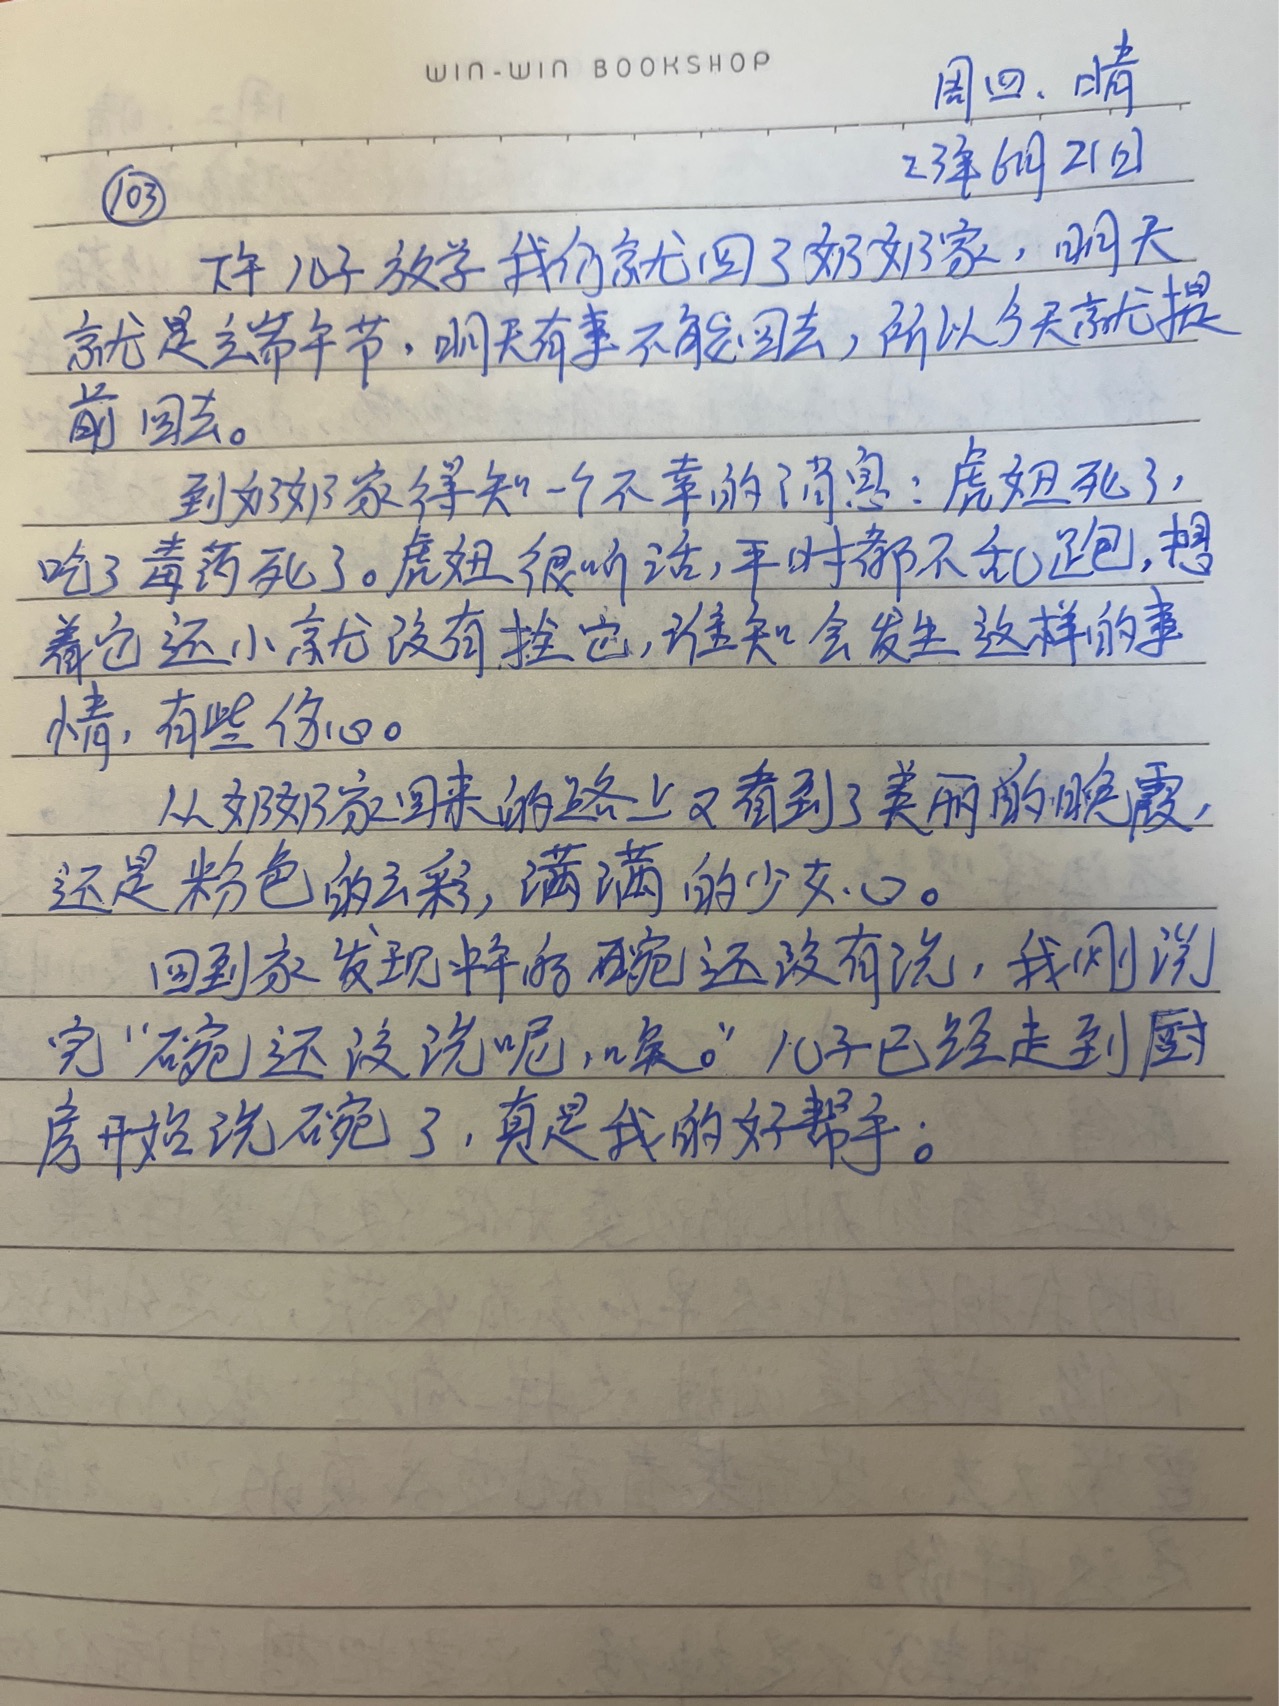 WIN-WIN BOOKSHOP
周四.晴
23年6月21日
103
下午儿子放学我们就回了奶奶家,明天
就是端午节,明天有事不能回去,所以今天就提
前回去。
到奶奶家得知一个不幸的消息:虎妞死了,
吃了毒药死了。虎妞很听话,平时都不乱跑,想
着它还小就没有拴它,谁知会发生这样的事
情,有些伤心。
从奶奶家回来的路上又看到了美丽的晚霞,
还是粉色的云彩,满满的少女心。
回到家发现中午的碗还没有洗,我刚说
完“碗还没洗呢,唉。”儿子已经走到厨
房开始洗碗了,真是我的好帮手。